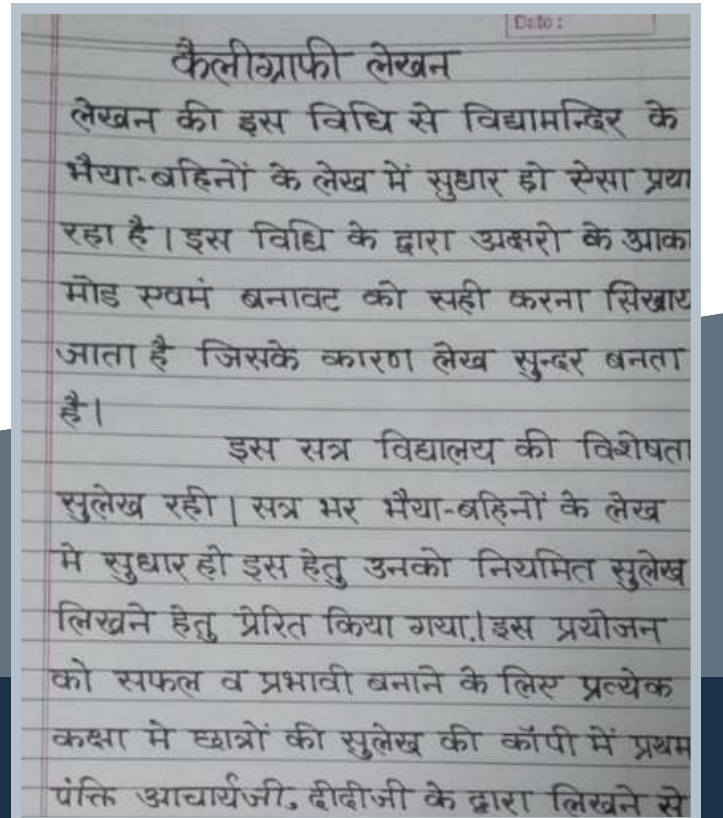 Date :
कैलीग्राफी लेखन
लेखन की इस विधि से विद्यामन्दिर के
भैया-बहिनों के लेख में सुधार हो ऐसा प्रया
रहा है। इस विधि के द्वारा अक्षरो के आका
मोड एवमं बनावट को सही करना सिखाय
जाता है जिसके कारण लेख सुन्दर बनता
है।
इस सत्र विद्यालय की विशेषता
सुलेख रही। सत्र भर भैया-बहिनों के लेख
मे सुधार हो इस हेतु उनको नियमित सुलेख
लिखने हेतु प्रेरित किया गया।इस प्रयोजन
को सफल व प्रभावी बनाने के लिए प्रत्येक
कक्षा मे छात्रों की सुलेख की कॉपी में प्रथम
पंक्ति आचार्यजी, दीदीजी के द्वारा लिखने से